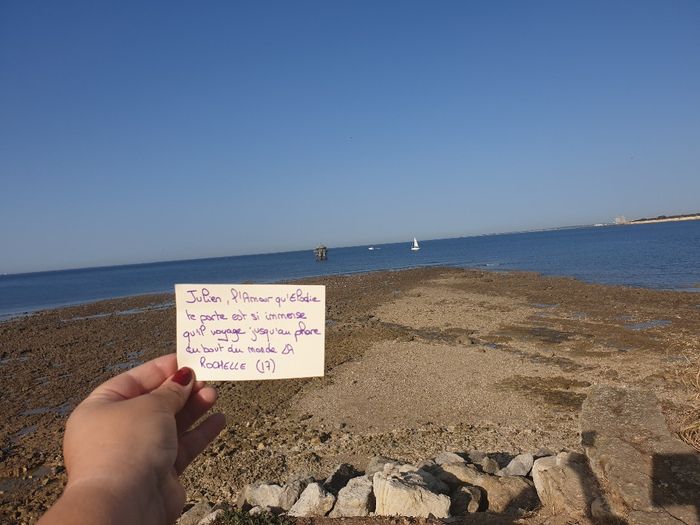 Julien, l'Amour qu'Elodie
te porte est si immense
qu'il voyage jusqu'au phare
du bout du monde LA
ROCHELLE (17)